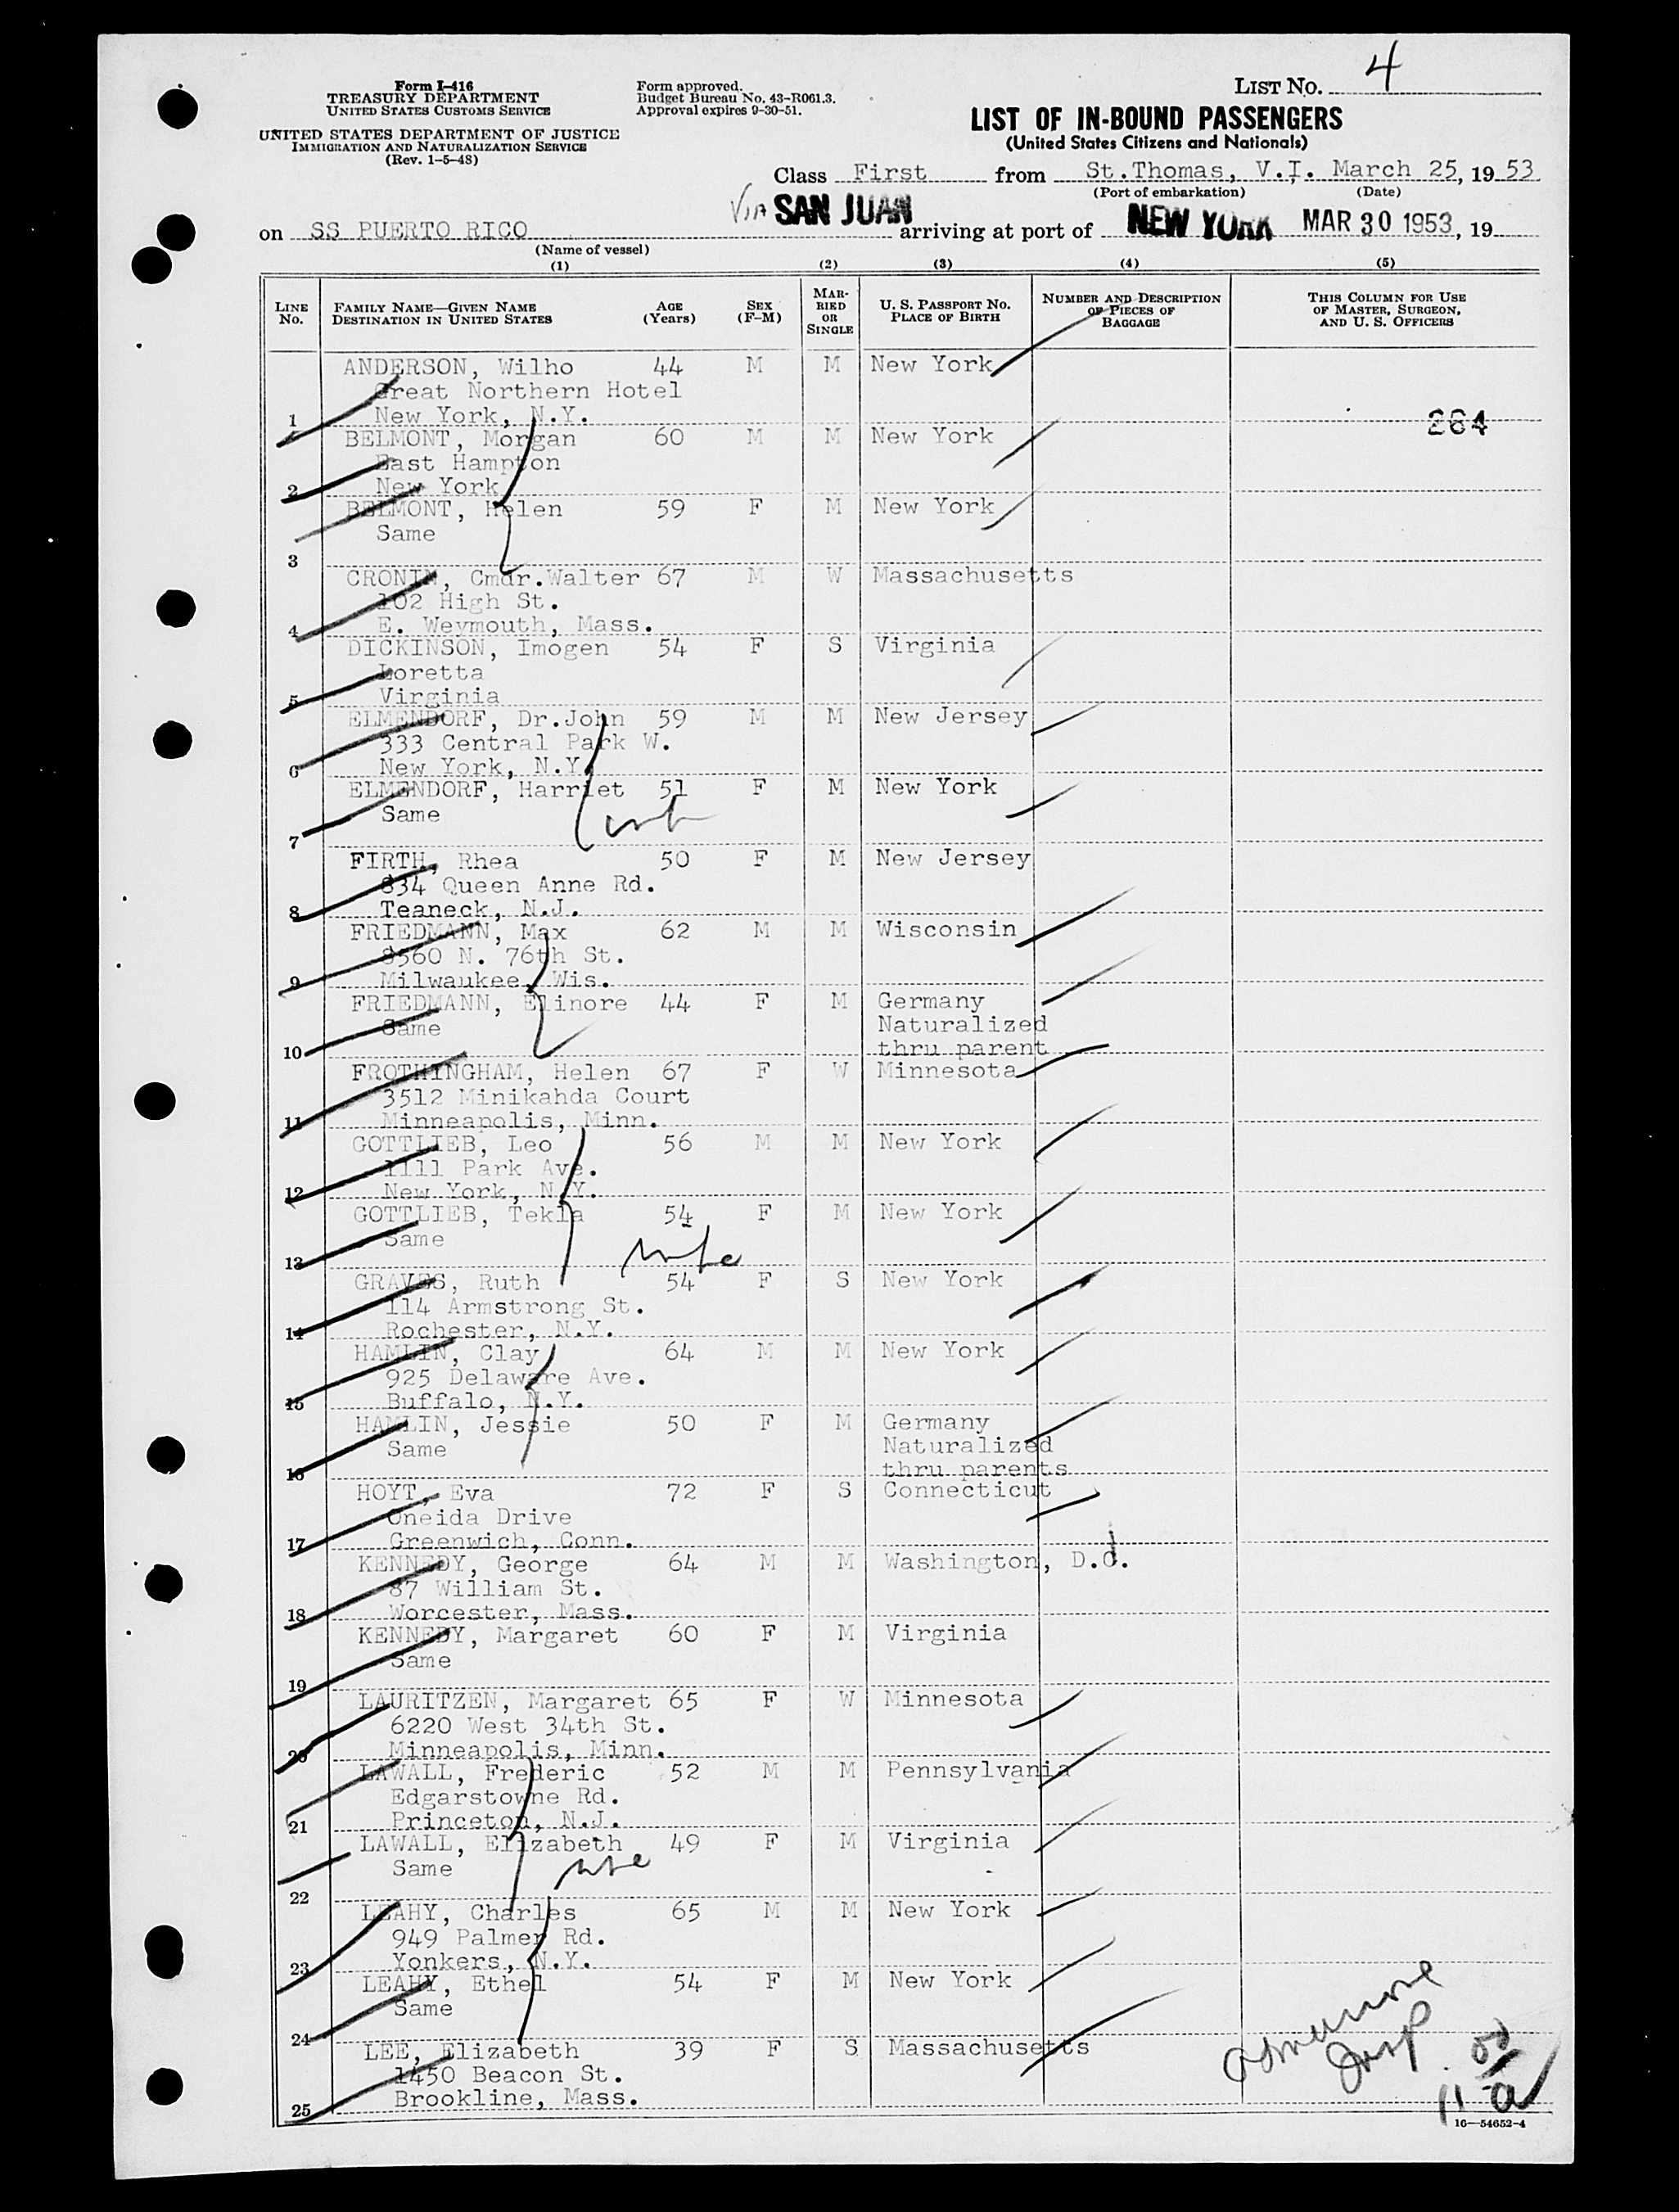 Form I-416
TREASURY DEPARTMENT
UNITED STATES CUSTOMS SERVICE
UNITED STATES DEPARTMENT OF JUSTICE
IMMIGRATION AND NATURALIZATION SERVICE
(Rev. 1-5-48)
Form approved.
Budget Bureau No. 43-R061.3.
Approval expires 9-30-51.
LIST NO. 4
LIST OF IN-BOUND PASSENGERS
(United States Citizens and Nationals)
Class First from St.Thomas, V.I. March 25, 19 53
(Port of embarkation) (Date)
Via SAN JUAN
on SS PUERTO RICO arriving at port of NEW YORK MAR 30 1953, 19
(Name of vessel)
(1) (2) (3) (4) (5)
LINE No. FAMILY NAME—GIVEN NAME DESTINATION IN UNITED STATES AGE (Years) SEX (F-M) MARRIED OR SINGLE U. S. PASSPORT NO. PLACE OF BIRTH NUMBER AND DESCRIPTION OF PIECES OF BAGGAGE THIS COLUMN FOR USE OF MASTER, SURGEON, AND U. S. OFFICERS
ANDERSON, Wilho 44 M M New York
Great Northern Hotel
1 New York, N.Y. 264
BELMONT, Morgan 60 M M New York
East Hampton
2 New York
BELMONT, Helen 59 F M New York
Same
3
CRONIN, Cmdr.Walter 67 M W Massachusetts
102 High St.
4 E. Weymouth, Mass.
DICKINSON, Imogen 54 F S Virginia
Loretta
5 Virginia
ELMENDORF, Dr.John 59 M M New Jersey
333 Central Park W.
6 New York, N.Y.
ELMENDORF, Harriet 51 F M New York
Same
7
FIRTH, Rhea 50 F M New Jersey
834 Queen Anne Rd.
8 Teaneck, N.J.
FRIEDMANN, Max 62 M M Wisconsin
8560 N. 76th St.
9 Milwaukee, Wis.
FRIEDMANN, Elinore 44 F M Germany
Same Naturalized
10 thru parent
FROTHINGHAM, Helen 67 F W Minnesota
3512 Minikahda Court
11 Minneapolis, Minn.
GOTTLIEB, Leo 56 M M New York
1111 Park Ave.
12 New York, N.Y.
GOTTLIEB, Tekla 54 F M New York
Same
13 wife
GRAVES, Ruth 54 F S New York
114 Armstrong St.
14 Rochester, N.Y.
HAMLIN, Clay 64 M M New York
925 Delaware Ave.
15 Buffalo, N.Y.
HAMLIN, Jessie 50 F M Germany
Same Naturalized
16 thru parents
HOYT, Eva 72 F S Connecticut
Oneida Drive
17 Greenwich, Conn.
KENNEDY, George 64 M M Washington, D.C.
87 William St.
18 Worcester, Mass.
KENNEDY, Margaret 60 F M Virginia
Same
19
LAURITZEN, Margaret 65 F W Minnesota
6220 West 34th St.
20 Minneapolis, Minn.
LAWALL, Frederic 52 M M Pennsylvania
Edgarstowne Rd.
21 Princeton, N.J.
LAWALL, Elizabeth 49 F M Virginia
Same wife
22
LEAHY, Charles 65 M M New York
949 Palmer Rd.
23 Yonkers, N.Y.
LEAHY, Ethel 54 F M New York
Same
24
LEE, Elizabeth 39 F S Massachusetts
1450 Beacon St.
25 Brookline, Mass.
16—54652-4